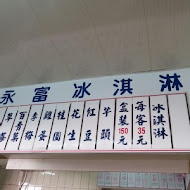 永富冰淇淋
冰淇淋
每客35元
盆裝150元
芋頭
紅豆
花生
桂圓
雞蛋
李梅
百香果
草莓